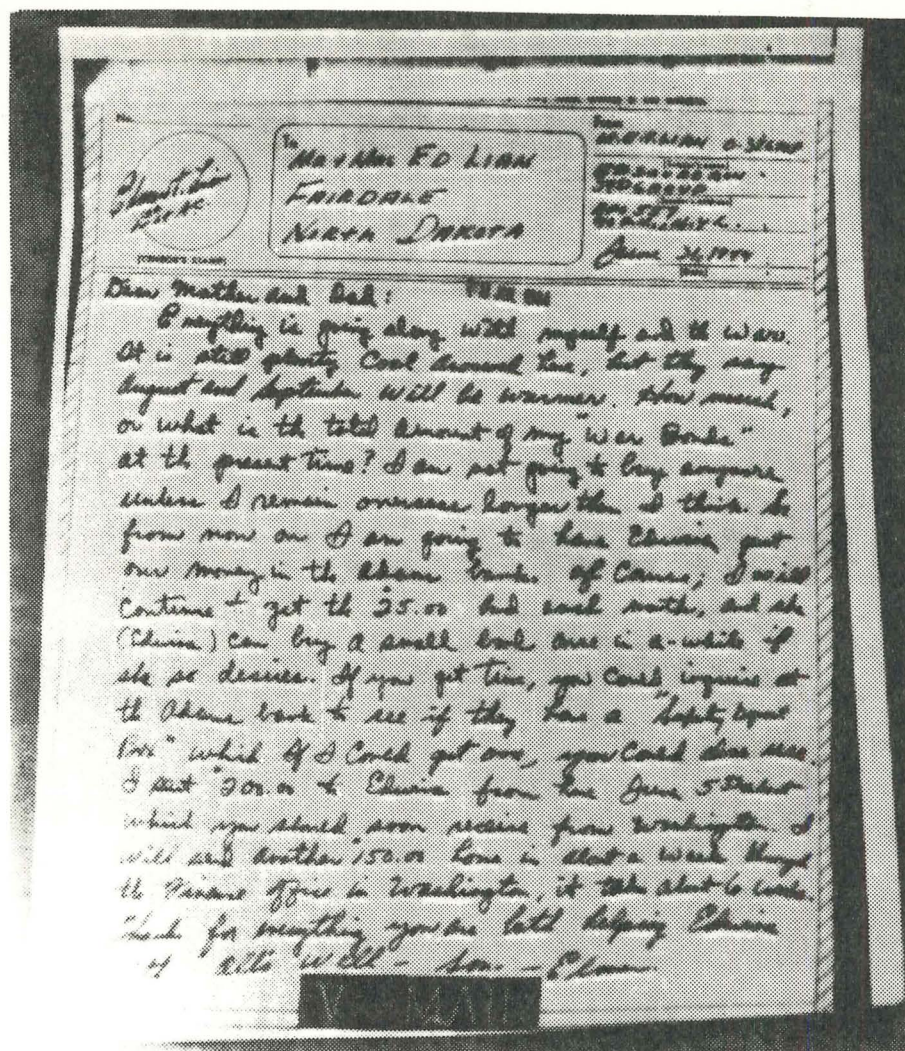 To
Mr + Mrs ED LIAN
FAIRDALE
NORTH DAKOTA
From
LIAN
GROUP
June 1944
(CENSOR'S STAMP)
Dear Mother and Dad:
Everything is going along with myself and th war.
It is still plenty cool around here, but they say
August and September will be warmer. How much,
or what is th total amount of my "War Bonds"
at th present time? I am not going to buy anymore
unless I remain overseas longer then I think. So
from now on I am going to have Edwina put
our money in th Adams bank. Of course, I will
continue to get th 25.00 bond each month, and she
(Edwina) can buy a small bond once in a-while if
she so desires. If you get time, you could inquire at
th Adams bank to see if they have a "Safety Deposit
Box" which if I could get one, you could also use.
I sent 200.00 to Edwina from here June 5
which you should soon receive from Washington. I
will send another 150.00 home in about a week through
th Finance Office in Washington, it takes about 6 weeks.
Thanks for everything you are both helping Edwina
with - Son - Elmer
V - MAIL